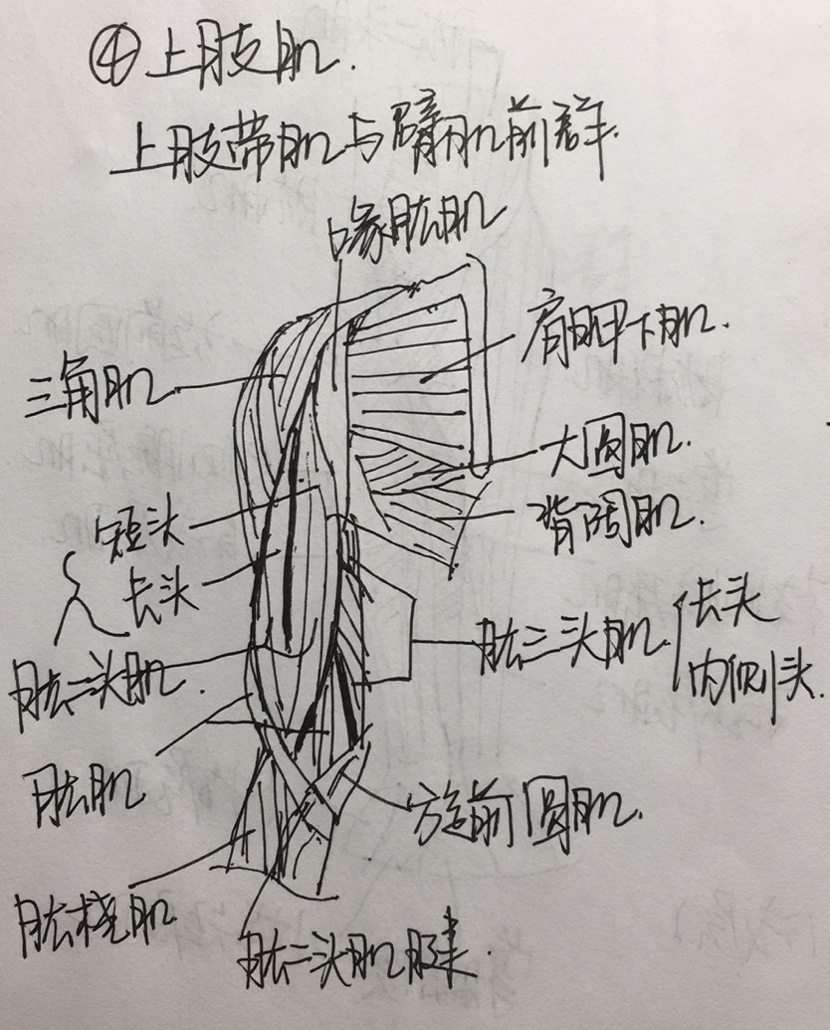 ④上肢肌.
上肢带肌与臂肌前群.
喙肱肌
肩胛下肌.
三角肌
大圆肌.
背阔肌.
短头
长头
肱二头肌.
肱三头肌.
长头
内侧头.
肱肌
旋前圆肌.
肱桡肌
肱二头肌腱.